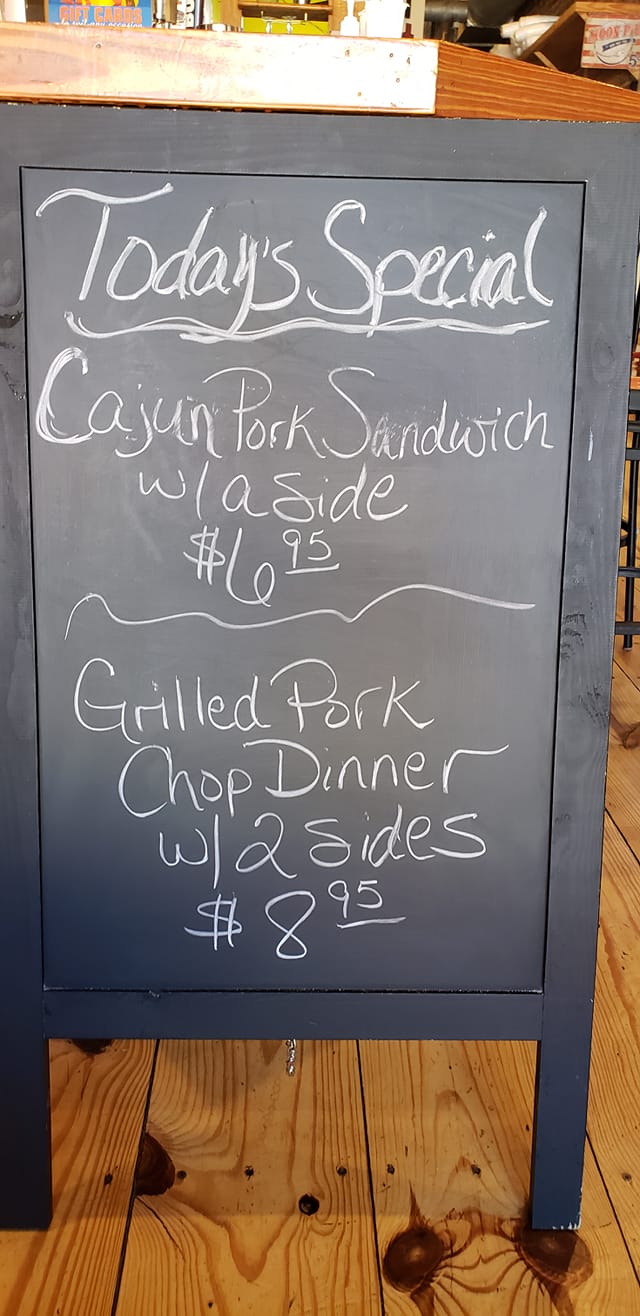 GIFT CARDS
MOON PIE
Today's Special
Cajun Pork Sandwich
w/ a Side
$6 95
Grilled Pork
Chop Dinner
w/ 2 Sides
$8 95